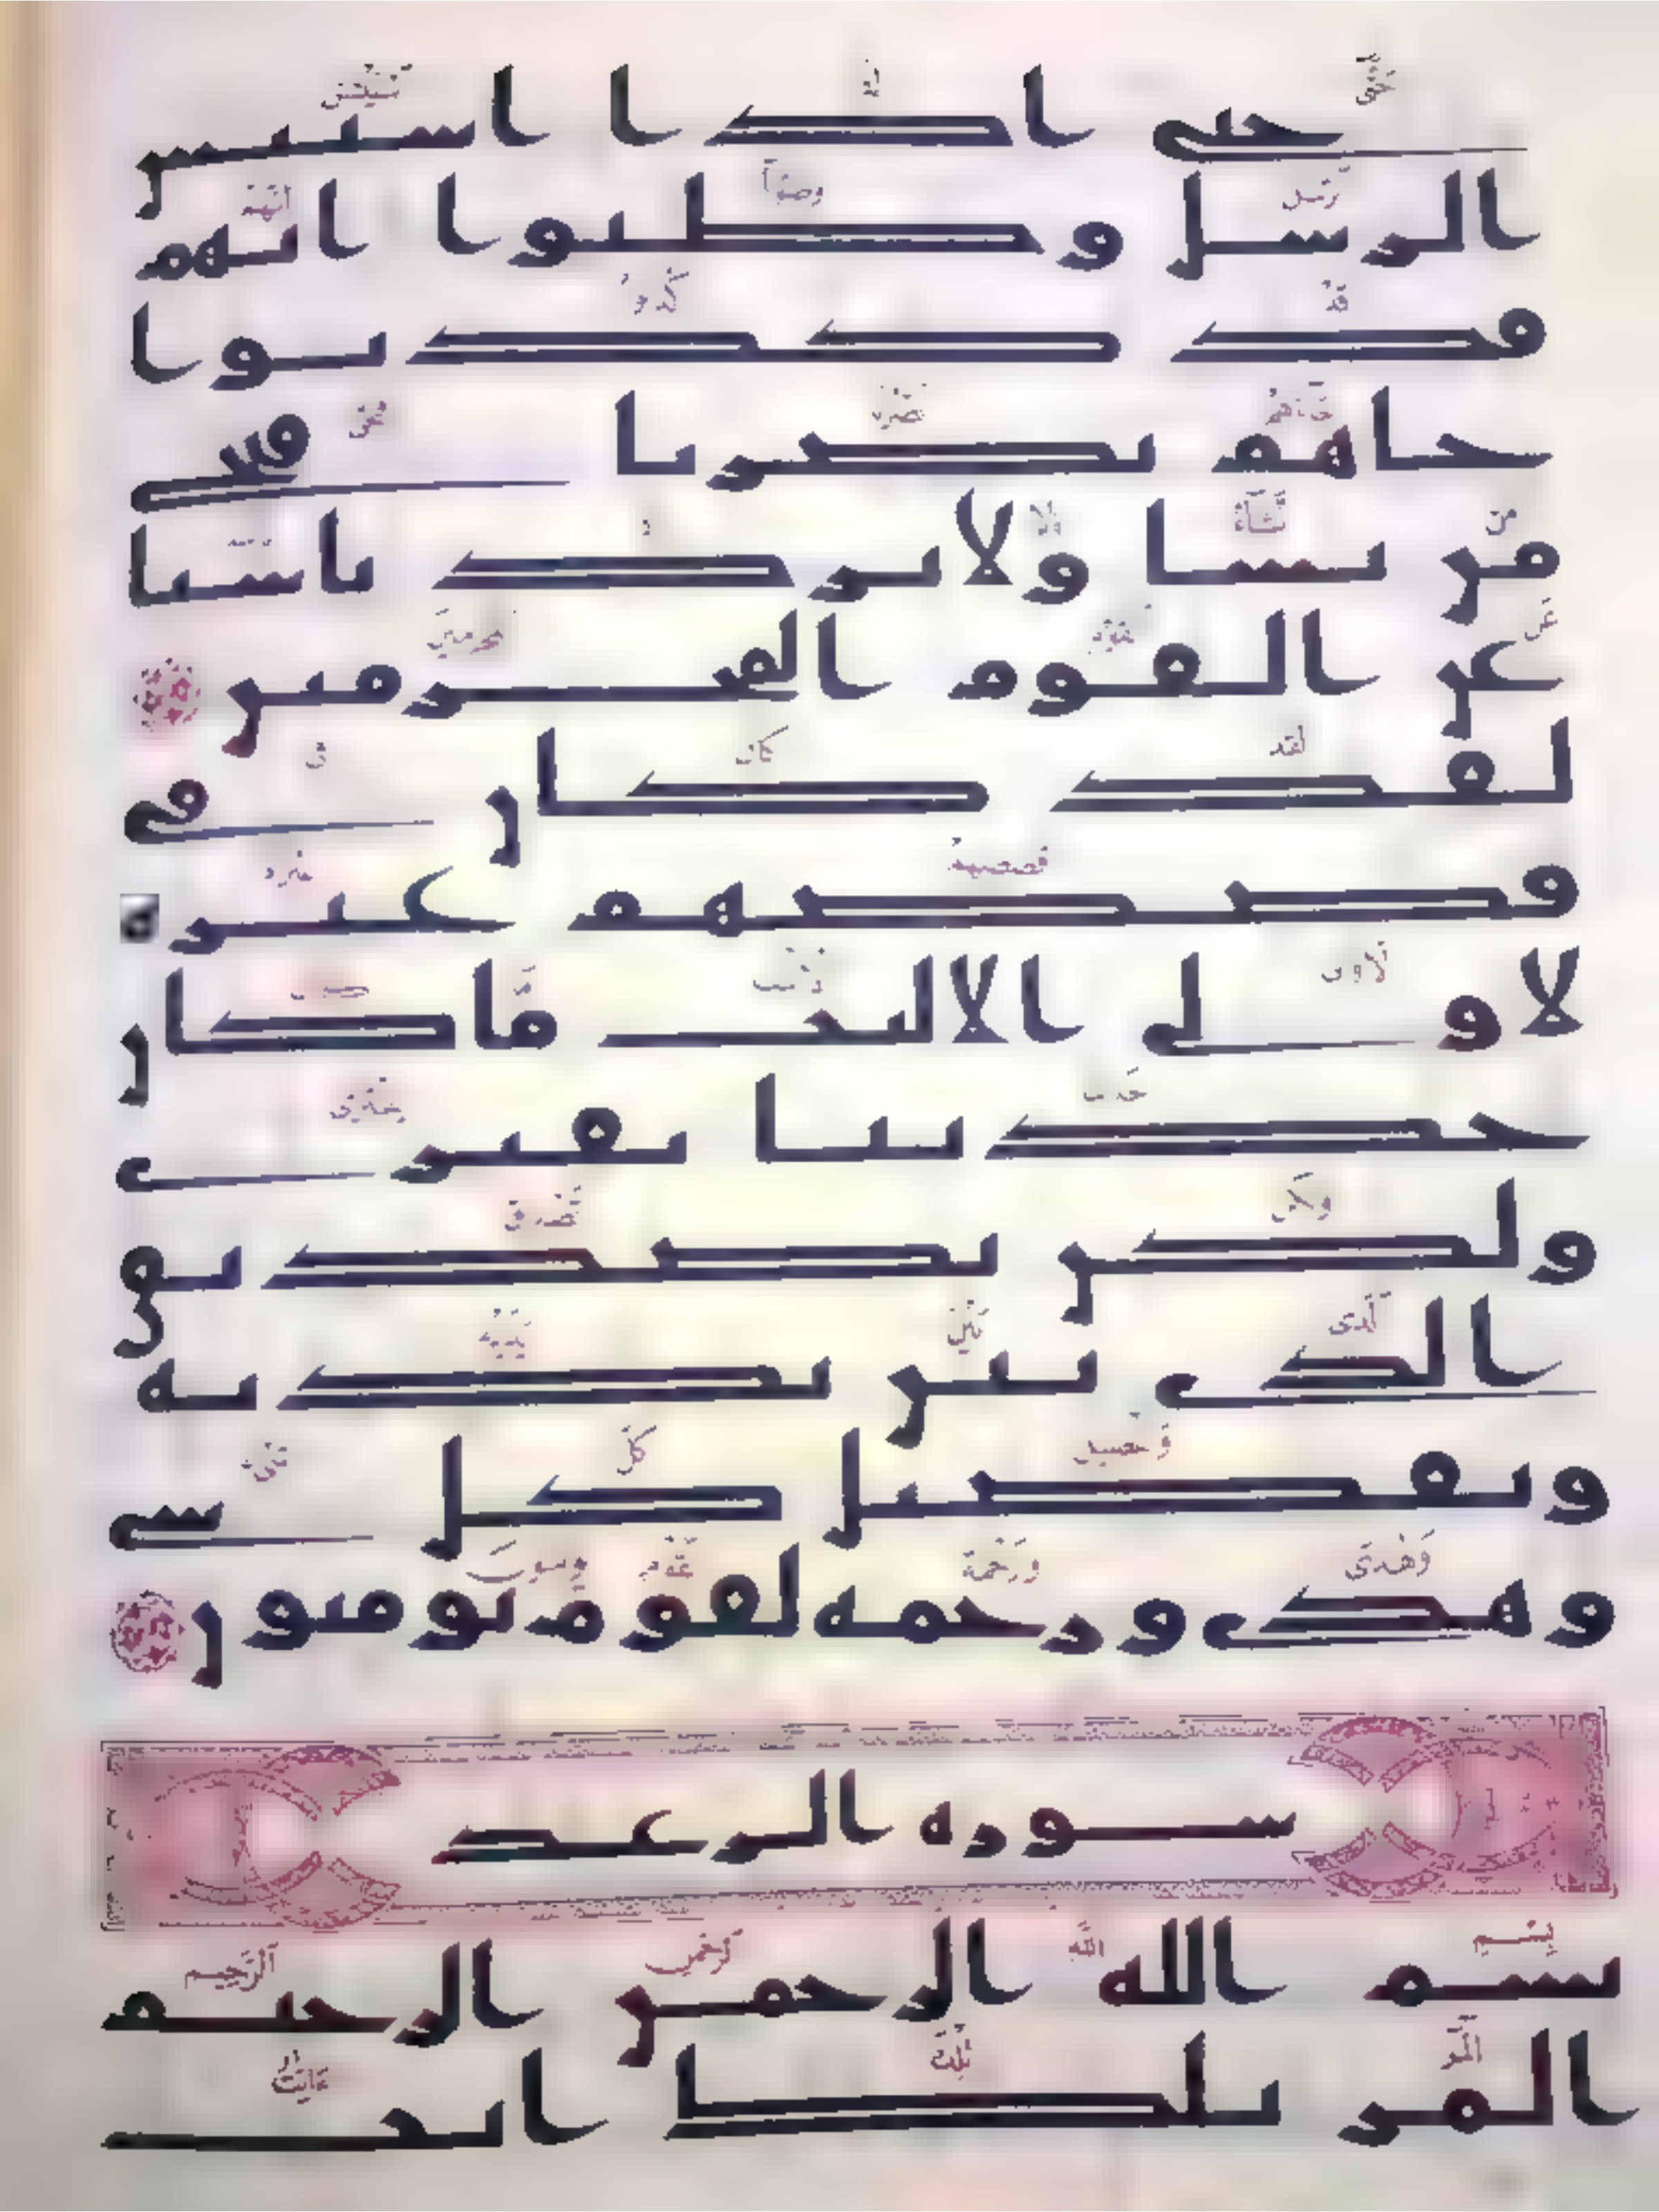 حتى اذا استيس
الرسل وظنوا انهم
قد كذبوا
جاهم نصرنا فنجى
من نشا ولا يرد باسنا
عن القوم المجرمين
لقد كان فى
قصصهم عبرة
لاولى الالبب ما كان
حديثا يفترى
ولكن تصديق
الذى بين يديه
وتفصيل كل شى
وهدى ورحمة لقوم يومنون
سورة الرعد
بسم الله الرحمن الرحيم
المر تلك ايت